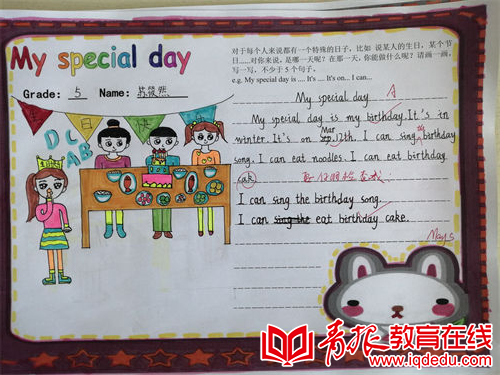 My special day
Grade: 5 Name:
D C
A B
对于每个人来说都有一个特殊的日子，比如 说某人的生日，某个节
日......对你来说，是哪一天呢？在那一天，你能做什么呢？请画一画，
写一写，不少于 5 个句子。
e.g. My special day is .... It's .... It's on... I can...
My special day A
My special day is my birthday. It's in
winter. It's on Mar 12th. I can sing the birthday
song. I can eat noodles. I can eat birthday
cak
I can sing the birthday song.
I can sing the eat birthday cake.
May 5
青报教育在线
www.iqdedu.com